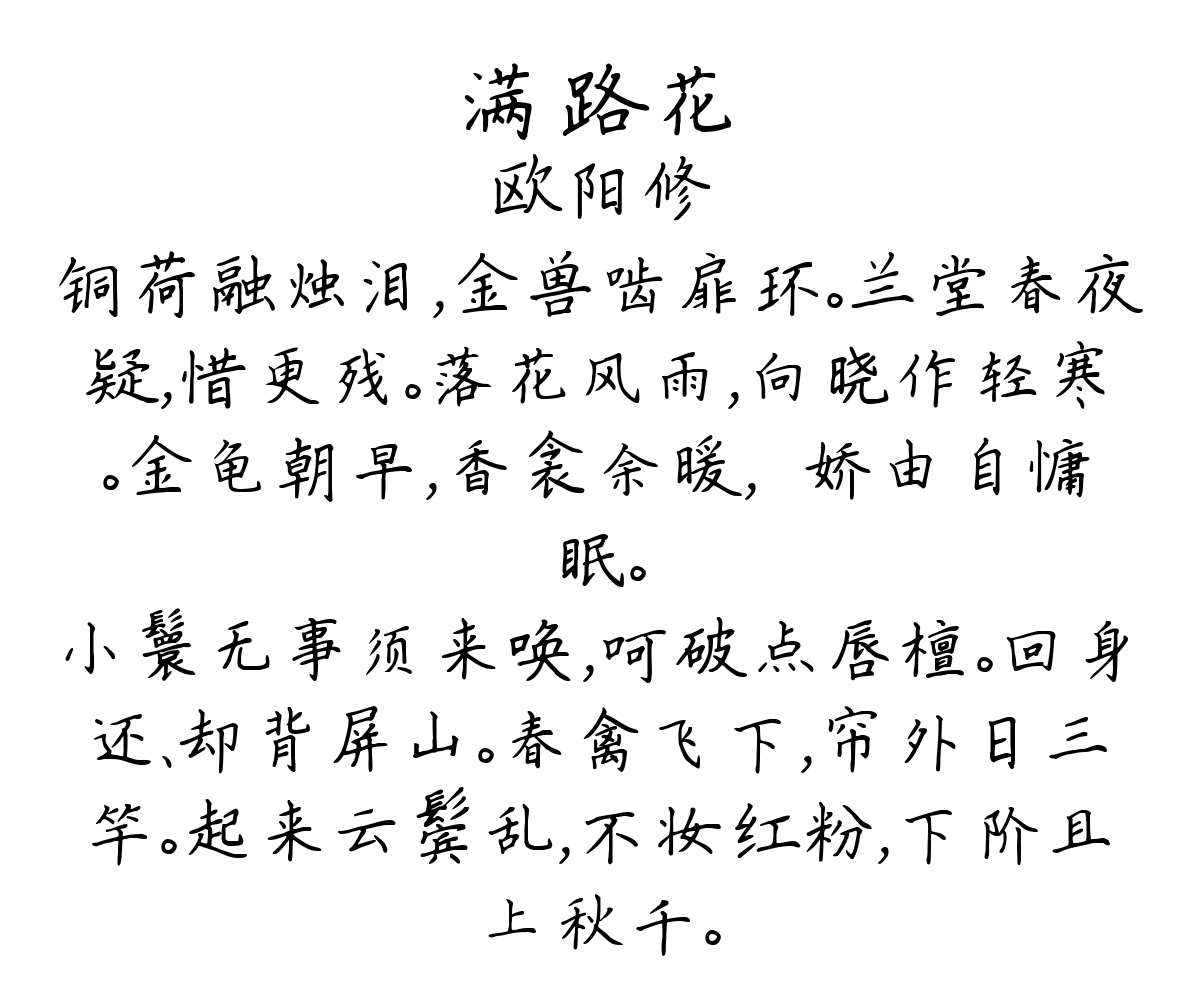 满路花
欧阳修
铜荷融烛泪,金兽啮扉环。兰堂春夜
疑,惜更残。落花风雨,向晓作轻寒
。金龟朝早,香衾余暖,娇由自慵
眠。
小鬟无事须来唤,呵破点唇檀。回身
还、却背屏山。春禽飞下,帘外日三
竿。起来云鬓乱,不妆红粉,下阶且
上秋千。